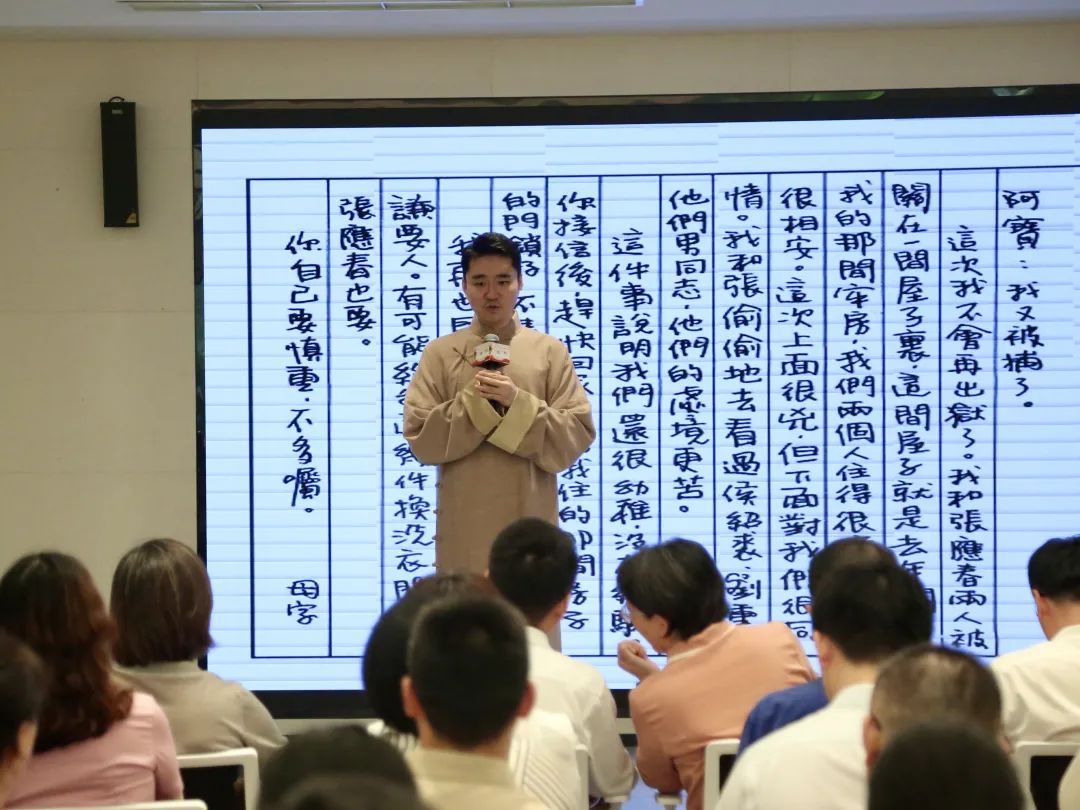 阿寶：我又被捕了。
這次我不會再出獄了。我和張應春兩人被
關在一間屋子裏，這間屋子就是去年
我的那間牢房，我們兩個人住得很
很相安。這次上面很兇，但下面對我們很同
情。我和張偷偷地去看過侯紹裘、劉重
他們男同志，他們的處境更苦。
這件事說明我們還很幼稚，沒
你接信後趕快回 我住的那間房子
的門鎖 不
我再也
要人。有可能 件換洗衣服
張應春也要。
你自己要慎重，不多囑。
母字